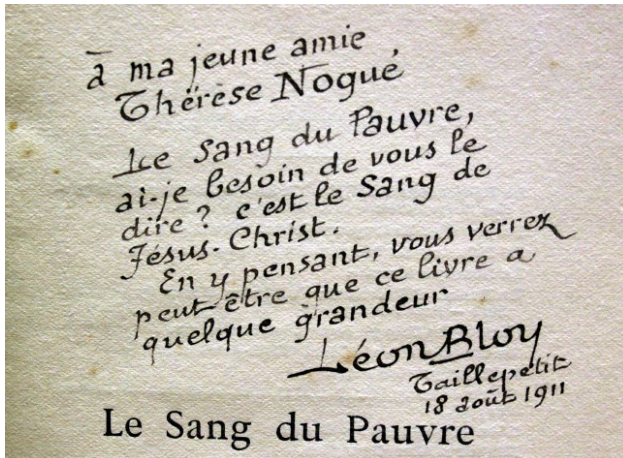 à ma jeune amie
Thérèse Nogué
Le Sang du Pauvre,
ai-je besoin de vous le
dire ? c'est le Sang de
Jésus-Christ.
En y pensant, vous verrez
peut être que ce livre a
quelque grandeur
Léon Bloy
Taillepetit
18 août 1911
Le Sang du Pauvre